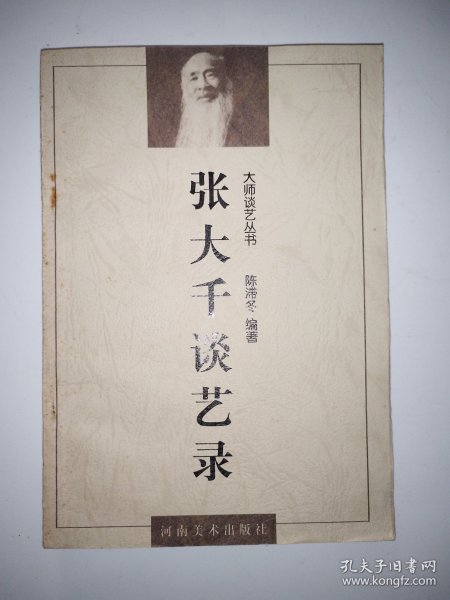 大师谈艺丛书
张大千谈艺录
陈滞冬 编著
河南美术出版社
孔夫子旧书网
www.kongfz.com